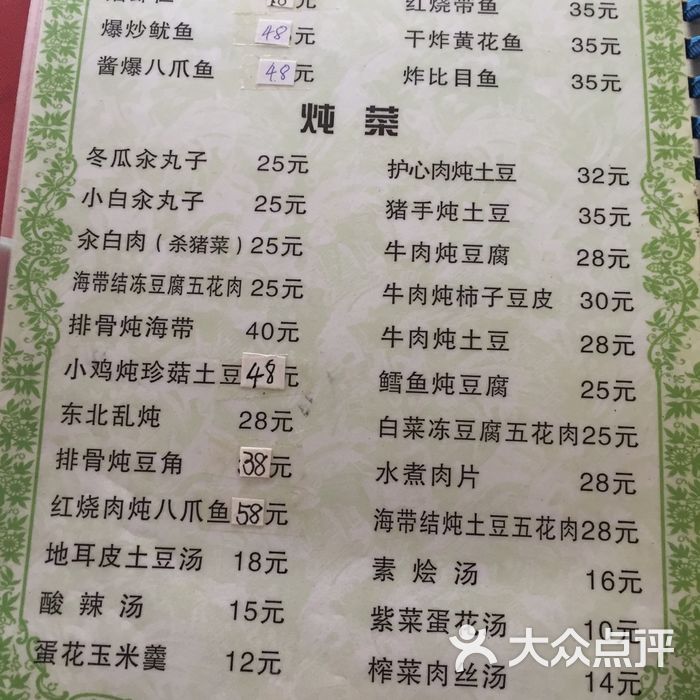 爆炒鱿鱼 48元
酱爆八爪鱼 48元
红烧带鱼 35元
干炸黄花鱼 35元
炸比目鱼 35元
炖菜
冬瓜汆丸子 25元
小白汆丸子 25元
汆白肉(杀猪菜) 25元
海带结冻豆腐五花肉 25元
排骨炖海带 40元
小鸡炖珍菇土豆 48元
东北乱炖 28元
排骨炖豆角 38元
红烧肉炖八爪鱼 58元
地耳皮土豆汤 18元
酸辣汤 15元
蛋花玉米羹 12元
护心肉炖土豆 32元
猪手炖土豆 35元
牛肉炖豆腐 28元
牛肉炖柿子豆皮 30元
牛肉炖土豆 28元
鳕鱼炖豆腐 25元
白菜冻豆腐五花肉 25元
水煮肉片 28元
海带结炖土豆五花肉 28元
素烩汤 16元
紫菜蛋花汤 10元
榨菜肉丝汤 14元
大众点评